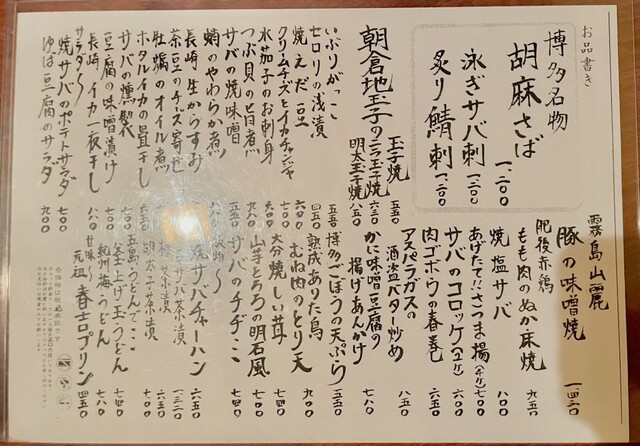 お品書き
博多名物
胡麻さば 一、二〇〇
泳ぎサバ刺 一、二〇〇
炙り鯖刺 一、二〇〇
朝倉地玉子のニラ玉子焼 六三〇
玉子焼 五五〇
明太玉子焼 八五〇
いぶりがっこ 五五〇
セロリの浅漬 四五〇
焼えだ豆 六〇〇
クリムチーズとイカチャンジャ 七〇〇
水茄子のお刺身
つぶ貝の旨煮
サバの焼味噌 五五〇
蛸のやわらか煮
長崎 生からすみ
茶豆のチーズ寄せ
牡蠣のオイル煮
ホタルイカの畳干し
サバの燻製
豆腐の味噌漬け
長崎 イカ一夜干し 八八〇
サラダ〜
焼サバのポテトサラダ 七〇〇
ゆば豆腐のサラダ 九〇〇
霧島山麓
豚の味噌焼 一、四三〇
肥後赤鶏
もも肉のぬか床焼 九五〇
焼塩サバ 八〇〇
あげたて!!さつま揚(4ケ) 七〇〇
サバのコロッケ(2ケ) 六〇〇
肉ゴボウの春巻 六五〇
アスパラガスの
酒盗バター炒め 八五〇
かに味噌豆腐の
揚げあんかけ 七八〇
博多ごぼうの天ぷら 五五〇
熟成ありた鳥
むね肉のとり天 九〇〇
大分焼しい茸 七四〇
山芋とろろの明石風 七四〇
サバのチヂミ 七四〇
飯物〜
焼サバチャーハン 六五〇
サバ茶漬 一、三二〇
明太子茶漬 六五〇
五島うどんでござ
釜上げ玉うどん 七四〇
紀州梅うどん 七四〇
甘味〜
元祖 春吉プリン 四五〇